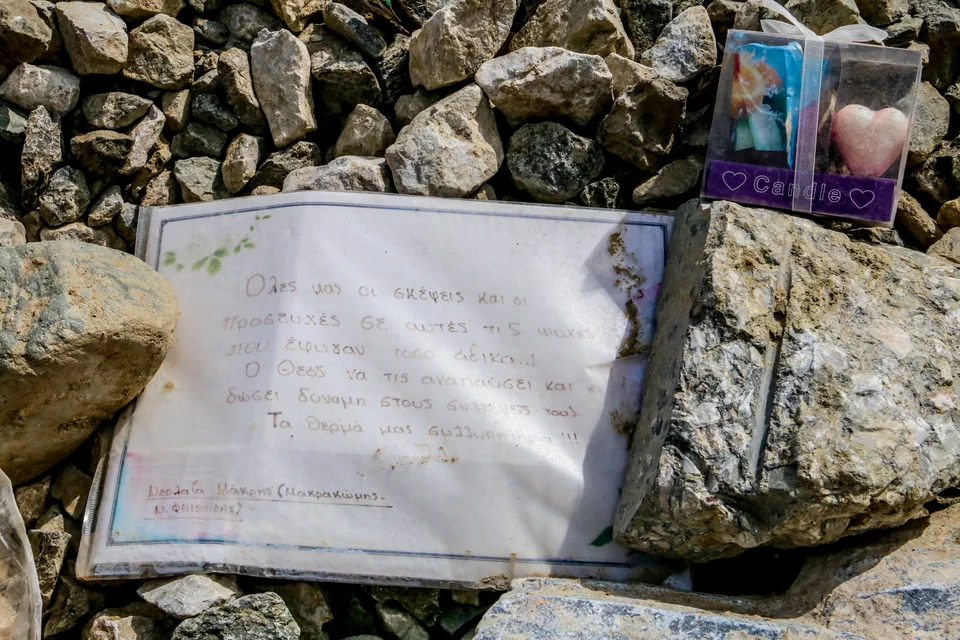 Candle
Όλες μας οι σκέψεις και οι
προσευχές σε αυτές τις ψυχές
που έφυγαν τόσο άδικα..!
Ο Θεός να τις αναπαύσει και
δώσει δύναμη στους συγγενείς τους
Τα θερμά μας συλλυπητήρια!!!
Νεολαία Μάκρης (Μακρακώμης-
Ν. Φθιώτιδας)